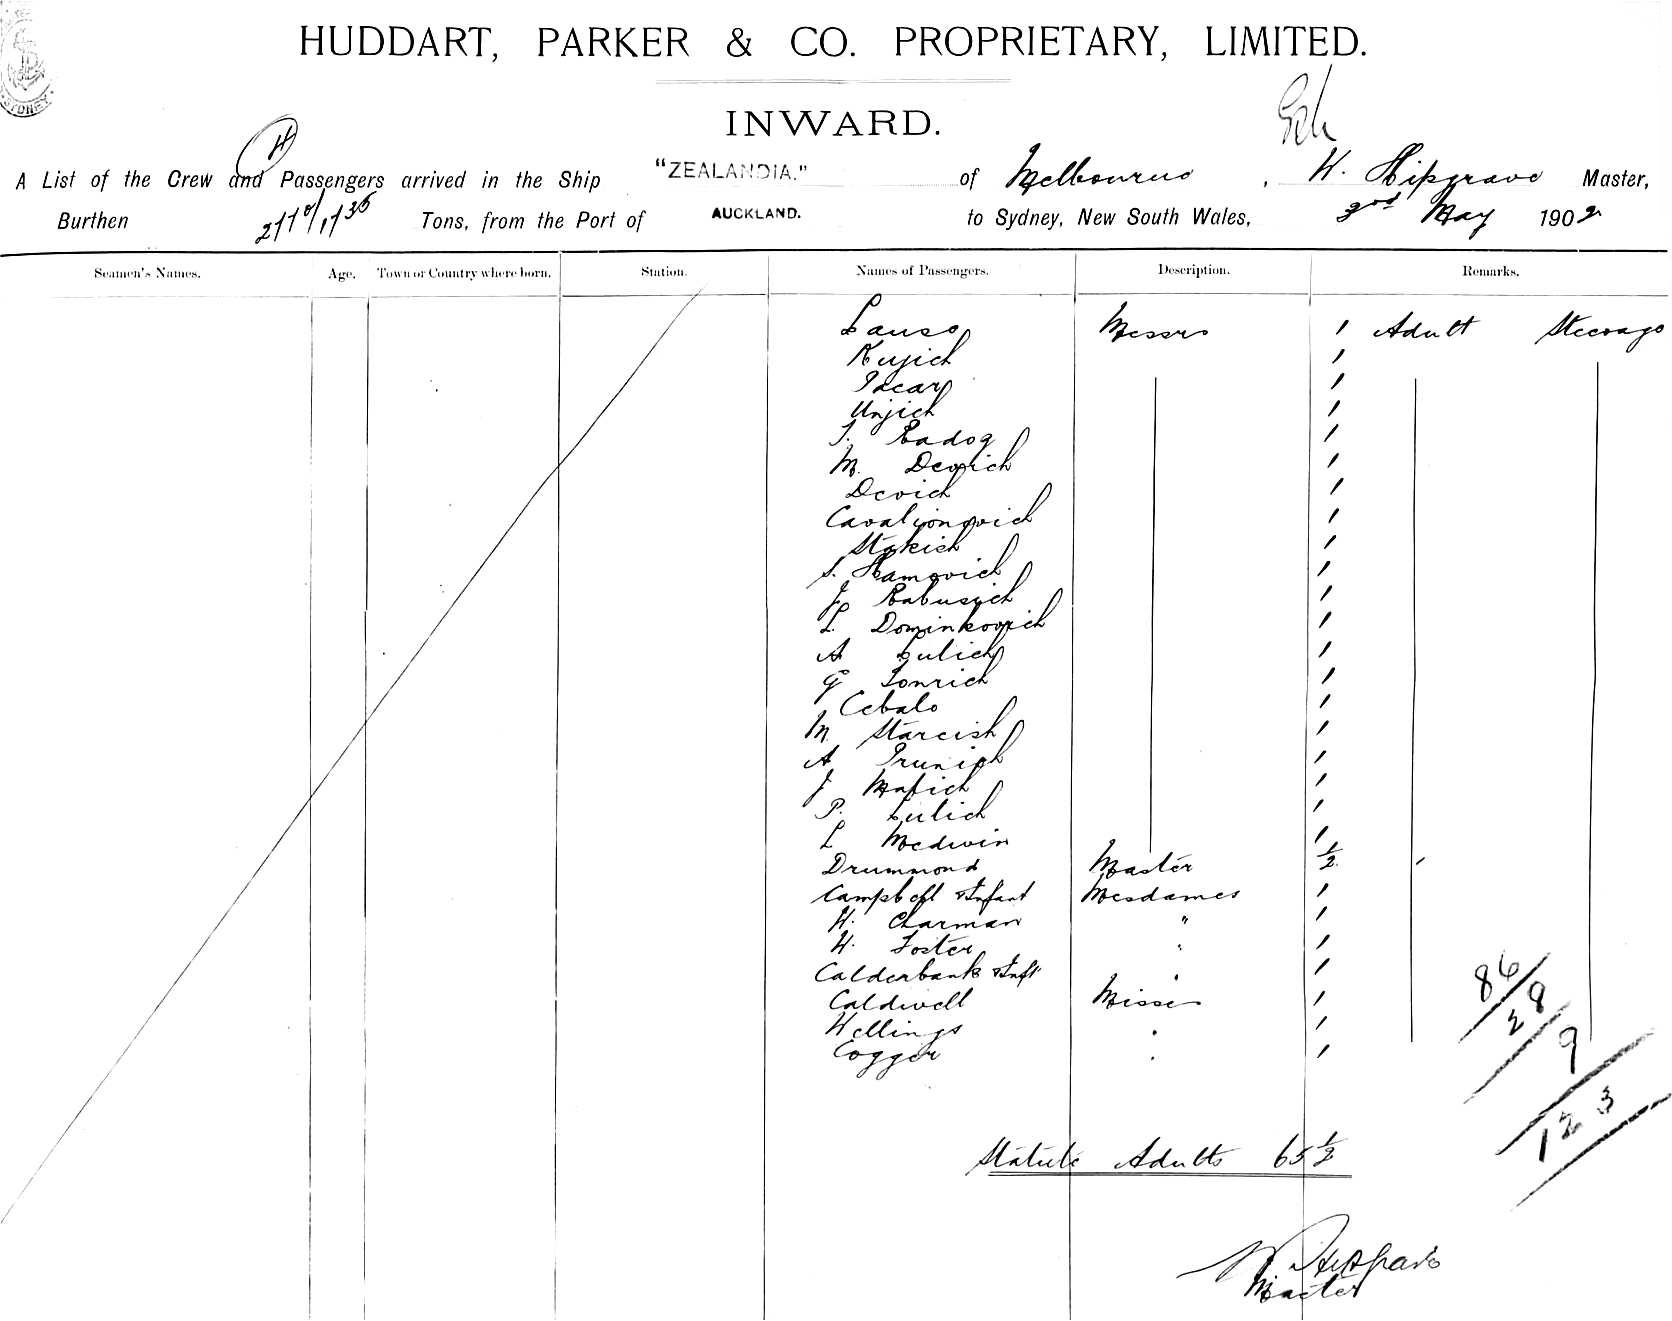 SYDNEY
HUDDART, PARKER & CO. PROPRIETARY, LIMITED.
INWARD.
H
A List of the Crew and Passengers arrived in the Ship "ZEALANDIA." of Melbourne, W. Hipgrave Master,
Burthen Tons, from the Port of AUCKLAND. to Sydney, New South Wales, 3rd May 1902
Seamen's Names. Age. Town or Country where born. Station. Names of Passengers. Description. Remarks.
Messrs 1 Adult Steerage
Kujich 1
1
Unjich 1
1
M. Devcich 1
Devich 1
1
Stokich 1
S. Hamovich 1
J. Rabusich 1
L. Dominkovich 1
A Lulich 1
G 1
Cebalo 1
M. Starcish 1
A 1
J 1
P. Lulich 1
L Medwin 1
Drummond Master 1/2
Campbell & Infant Mesdames 1
H. Charman " 1
H. Foster " 1
Calderbank & Inft " 1
Caldwell Misses 1
Wellings " 1
Cogger " 1
86
28
9
123
Statute Adults 65 1/2
W. Hipgrave
Master